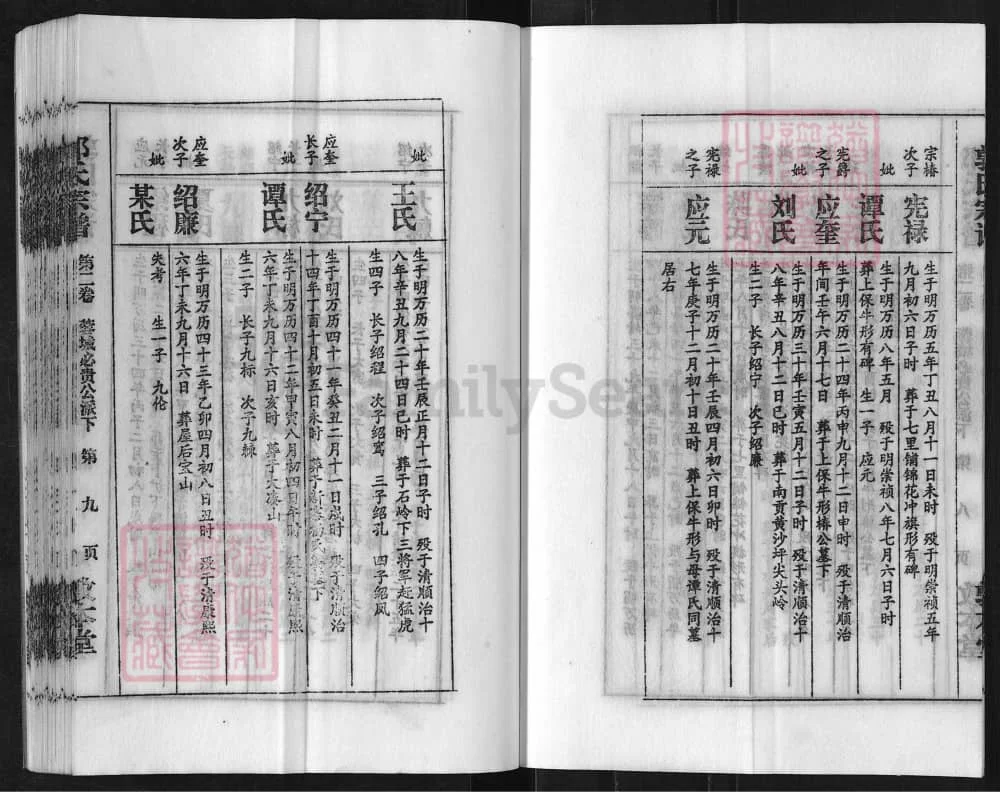 宗椿
次子
宪禄
生于明万历五年丁丑八月十一日未时 殁于明崇祯五年
九月初六日子时 葬于七里铺锦花冲旗形有碑
妣
谭氏
生于明万历八年五月 殁于明崇祯八年七月六日子时
葬上保牛形有碑 生一子 应元
宪爵
之子
应奎
生于明万历二十四年丙申九月十二日申时 殁于清顺治
年间壬午六月十七日 葬于上保牛形椿公墓下
妣
刘氏
生于明万历三十年壬寅五月十二日子时 殁于清顺治十
八年辛丑八月十二日巳时 葬于南贡黄沙坪尖头岭
生二子 长子绍宁 次子绍廉
宪禄
之子
应元
生于明万历二十年壬辰四月初六日卯时 殁于清顺治十
七年庚子十二月初十日丑时 葬上保牛形与母谭氏同墓
居右
妣
王氏
生于明万历二十年壬辰正月十二日子时 殁于清顺治十
八年辛丑九月二十四日巳时 葬于石岭下三将军赶猛虎
生四子 长子绍程 次子绍鸾 三子绍孔 四子绍凤
应奎
长子
绍宁
生于明万历四十一年癸丑二月十一日戌时 殁于清顺治
十四年丁酉十月初五日未时
妣
谭氏
生于明万历四十二年甲寅八月初四日午时 殁于清康熙
六年丁未九月十六日亥时 葬于大凑山
生二子 长子九标 次子九棘
应奎
次子
绍廉
生于明万历四十三年乙卯四月初八日丑时 殁于清康熙
六年丁未九月十六日 葬屋后宝山
妣
某氏
失考 生一子 九伦
氏宗谱
第二卷 蓉城必贵公派下 第 九 页
FamilySearch